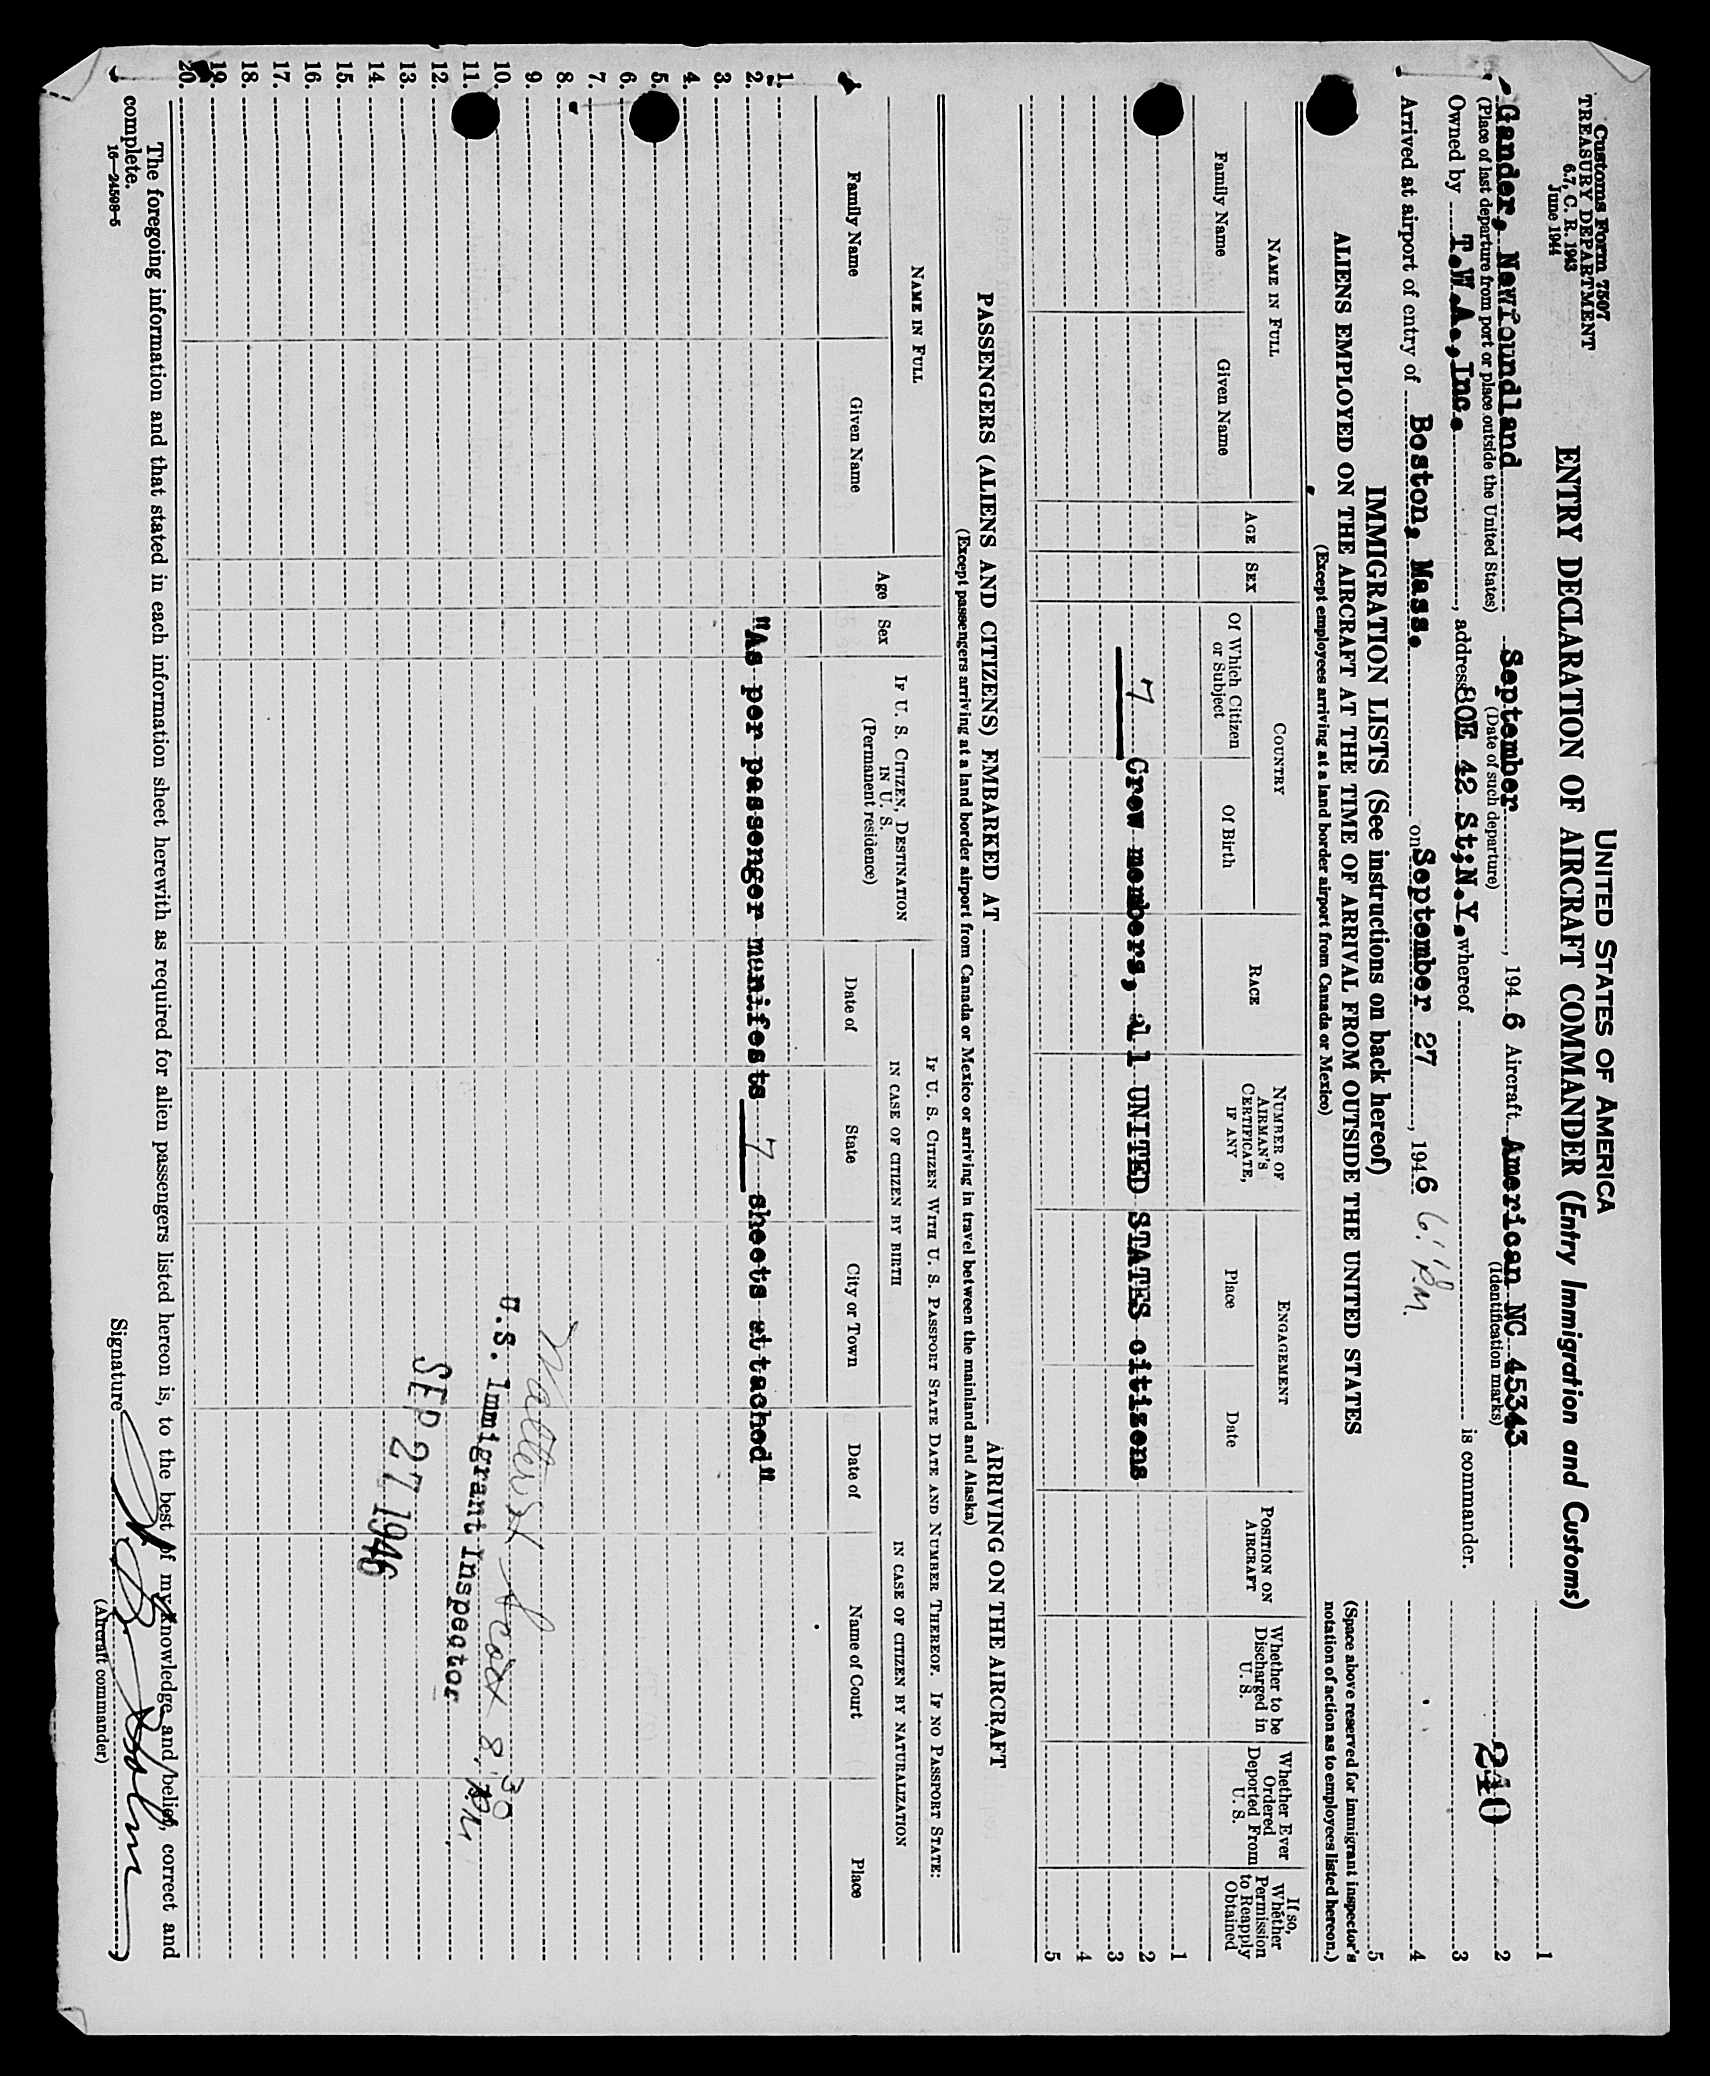 Customs Form 7507
TREASURY DEPARTMENT
6.7, C. R. 1943
June 1944
UNITED STATES OF AMERICA
ENTRY DECLARATION OF AIRCRAFT COMMANDER (Entry Immigration and Customs)
Gander, Newfoundland September, 1946 Aircraft American NC 45343
(Place of last departure from port or place outside the United States) (Date of such departure) (Identification marks)
Owned by T.W.A., Inc., address 80E 42 St; N.Y. whereof is commander.
Arrived at airport of entry of Boston, Mass. on September 27, 1946 6:PM.
1
2
240
3
4
5
(Space above reserved for immigrant inspector's notation of action as to employees listed hereon.)
IMMIGRATION LISTS (See instructions on back hereof)
ALIENS EMPLOYED ON THE AIRCRAFT AT THE TIME OF ARRIVAL FROM OUTSIDE THE UNITED STATES
(Except employees arriving at a land border airport from Canada or Mexico)
NAME IN FULL
Family Name
Given Name
AGE
SEX
COUNTRY
Of Which Citizen or Subject
Of Birth
RACE
NUMBER OF AIRMAN'S CERTIFICATE, IF ANY
ENGAGEMENT
Place
Date
POSITION ON AIRCRAFT
Whether to be Discharged in U. S.
Whether Ever Ordered Deported From U. S.
If so, Whether Permission to Reapply Obtained
1
7 Crew members, all UNITED STATES citizens
2
3
4
5
PASSENGERS (ALIENS AND CITIZENS) EMBARKED AT ARRIVING ON THE AIRCRAFT
(Except passengers arriving at a land border airport from Canada or Mexico or arriving in travel between the mainland and Alaska)
NAME IN FULL
Family Name
Given Name
Age
Sex
IF U. S. CITIZEN, DESTINATION IN U. S.
(Permanent residence)
IF U. S. CITIZEN WITH U. S. PASSPORT STATE DATE AND NUMBER THEREOF. IF NO PASSPORT STATE:
IN CASE OF CITIZEN BY BIRTH
IN CASE OF CITIZEN BY NATURALIZATION
Date of
State
City or Town
Date of
Name of Court
Place
1.
2. "As per passenger manifests 7 sheets attached"
3.
4.
5.
6.
7.
8.
9.
10. 8:30 P.M.
11. U.S. Immigrant Inspector
12.
13. SEP 27 1946
14.
15.
16.
17.
18.
19.
20.
The foregoing information and that stated in each information sheet herewith as required for alien passengers listed hereon is, to the best of my knowledge and belief, correct and
complete.
16—24508-5
Signature
(Aircraft commander)